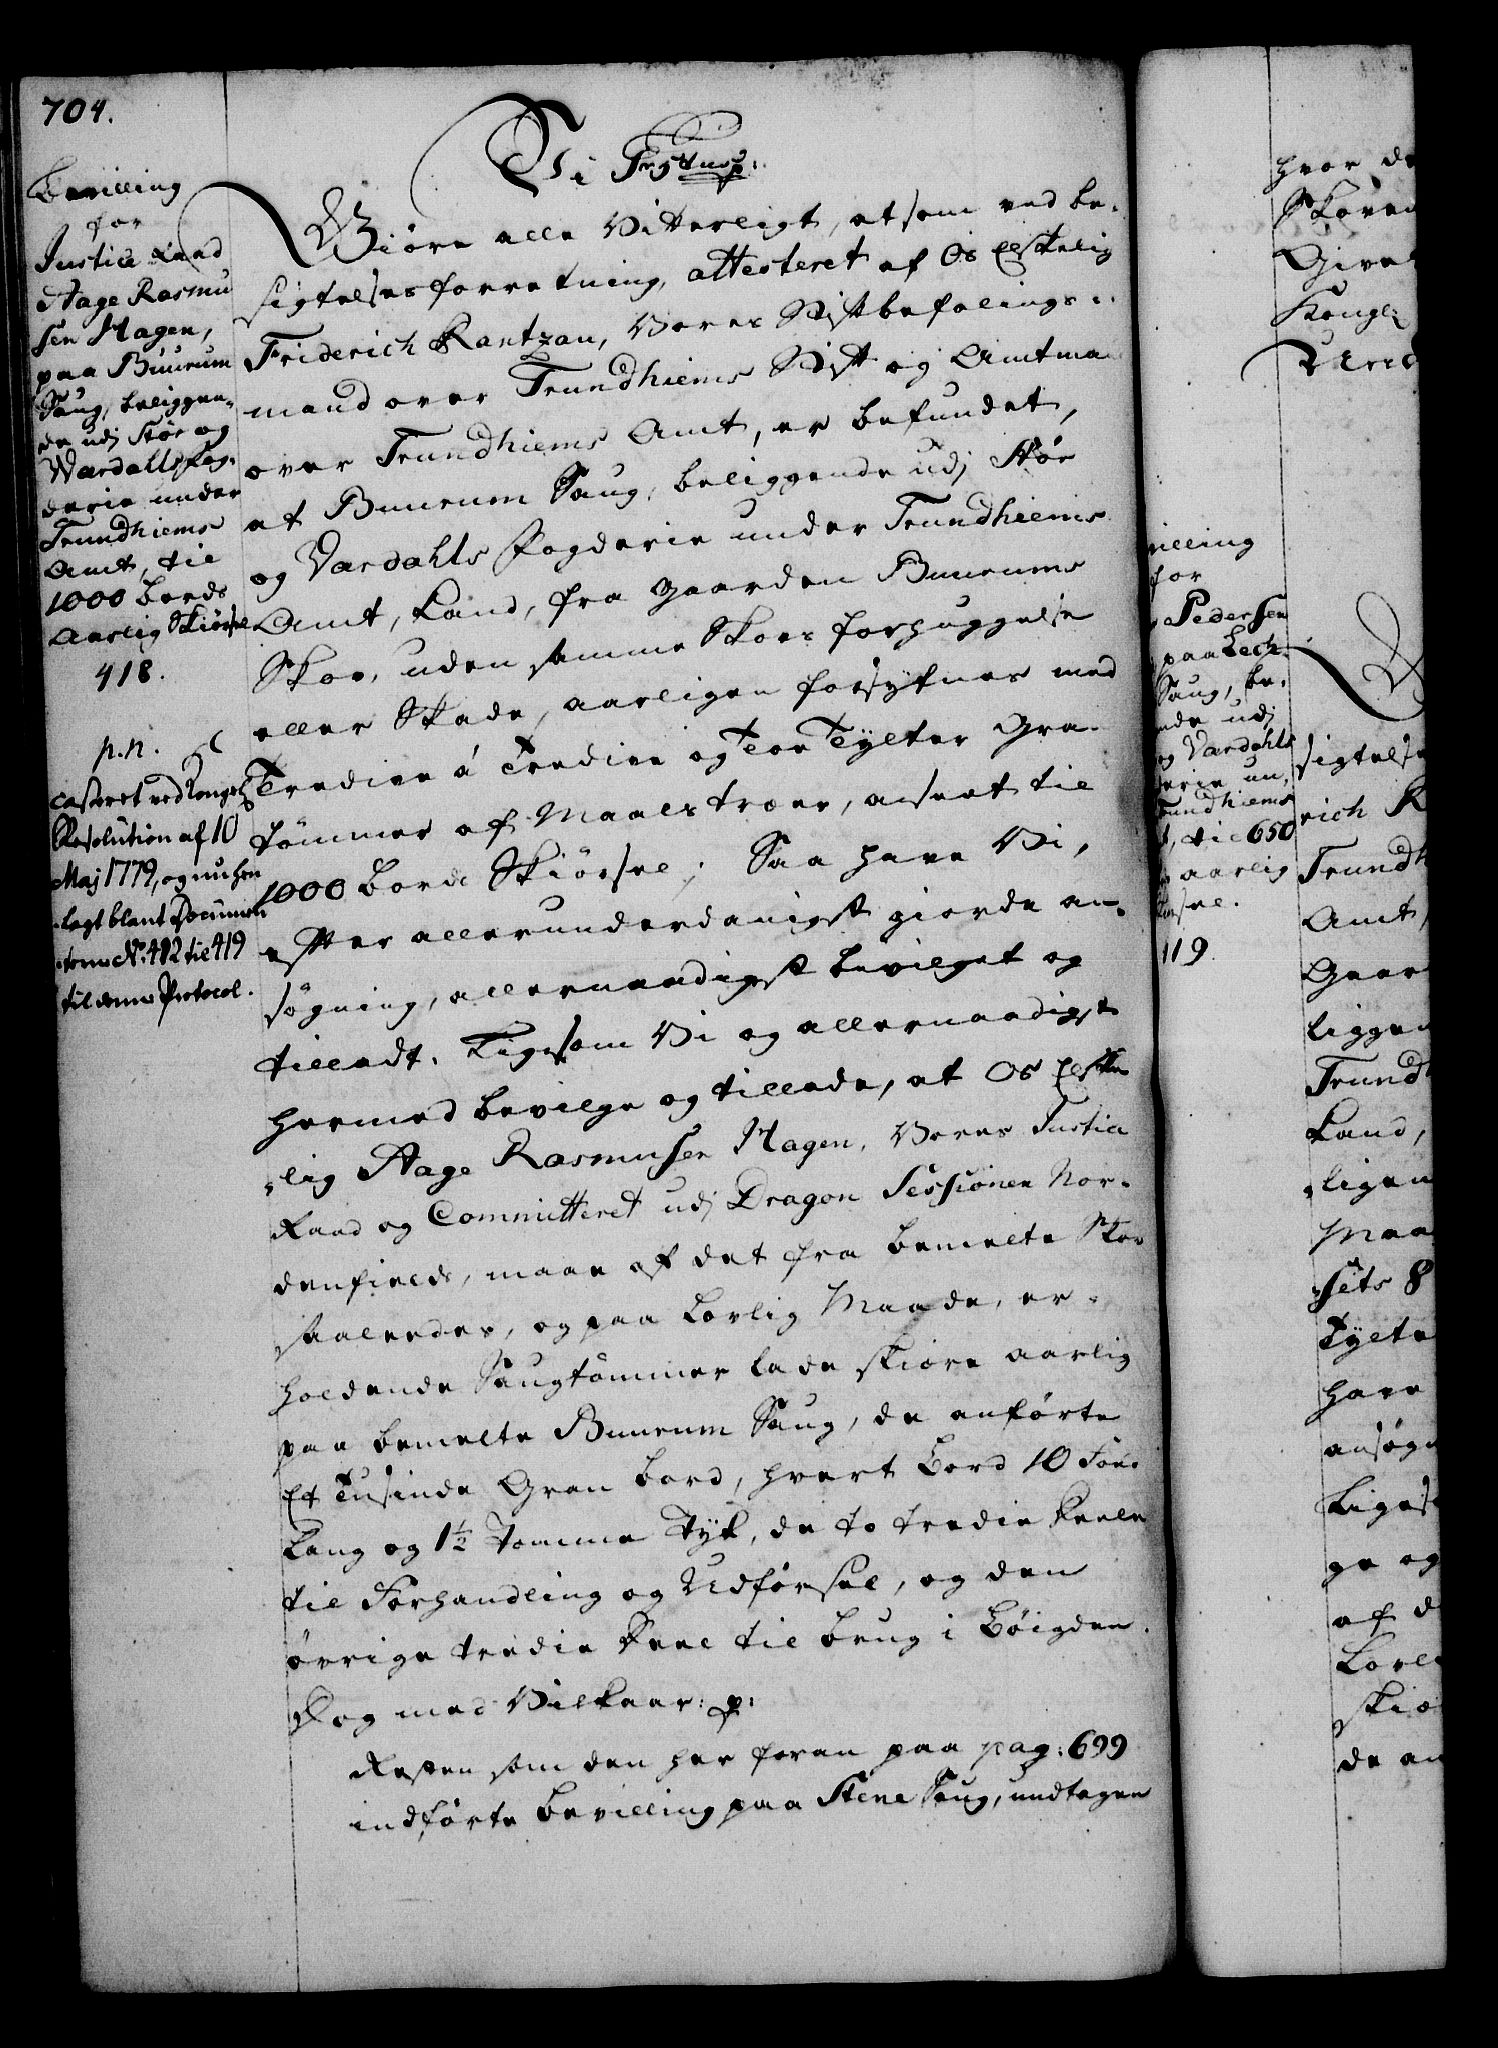 704.
Bevilling
for
Justice Raad
Aage Rasmu
sen Hagen,
paa Buurum
Saug, beliggen-
de udj Stør og
Wardalls Fog-
derie under
Trundhiems
Amt, til
1000 Bords
Aarlig Skiørsel
418.
p. n.
casseret ved Kongel:
Resolution af 10
Maj 1779, og nu hen
lagt blant Documen
terne No. 412 til 419
til denne Protocol.
Vi
Giøre alle Vitterligt, at som ved be-
sigtelses forretning, attesteret af Os Elskelig
Friderich Rantzau, Vores Stiftbefalings-
mand over Trundhiems Stift og Amtmand
over Trundhiems Amt, er befundet,
at Buurum Saug, beliggende udj Stør
og Vardahls Fogderie under Trundhiems
Amt, kand, fra Gaarden Buurums
Skov, uden samme Skovs forhuggelse
eller Skade, aarligen forsyfnes med
Tredive á Tredive og Toe Tylter Gra-
tømmer af Maalstræer, anseet til
1000 Bords Skiørsel; Saa have Vi,
efter allerunderdanigst giorde an-
søgning, allernaadigst bevilget og
tilladt, Ligesom Vi og allernaadigst
hermed bevilge og tillade, at Os Elske
lig Aage Rasmusen Hagen, Vores Justice
Raad og Committeret udj Dragon Sessionen Nor-
denfields, maae af det fra bemelte Skov
saaleedes, og paa Lovlig Maade, er-
holdende Saugtømmer lade skiøre aarlig
paa bemelte Buurum Saug, de anførte
Et Tusinde Gran bord, hvert Bord 10 Foed
Lang og 1½ Tomme Tyk, de to tredie Deele
til Forhandling og Udførsel, og den
øvrige tredie Deel til brug i Bøigden.
Dog med Vilkaar: p:
Resten som den her foran paa pag: 699
indførte Bevilling paa Stene Saug, undtagen
villing
for
Pedersen
paa Lech-
Saug, be-
nde udj
og Vardahls
derie un-
Trundhiems
t, til 650
aarlig
119.
hvor de
Skoven
Givet
Kongl:
Unde
sigtelse
rich R
Trundh
Amt,
Gaar
liggen
Trundh
kand,
ligen
Maa
sets 8
Tylte
have
ansøgn
Ligeso
ge og
af d
Lovl
skiø
de an